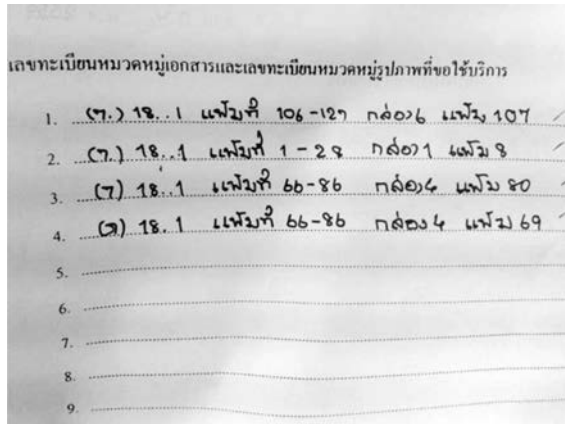 เลขทะเบียนหมวดหมู่เอกสารและเลขทะเบียนหมวดหมู่รูปภาพที่ขอใช้บริการ
1. (ว.) 18..1 แฟ้มที่ 106-127 กล่อง6 แฟ้ม 107
2. (ว.) 18..1 แฟ้มที่ 1-28 กล่อง1 แฟ้ม 8
3. (ว) 18..1 แฟ้มที่ 66-86 กล่อง4 แฟ้ม 80
4. (ว) 18.1 แฟ้มที่ 66-86 กล่อง4 แฟ้ม 69
5.
6.
7.
8.
9.